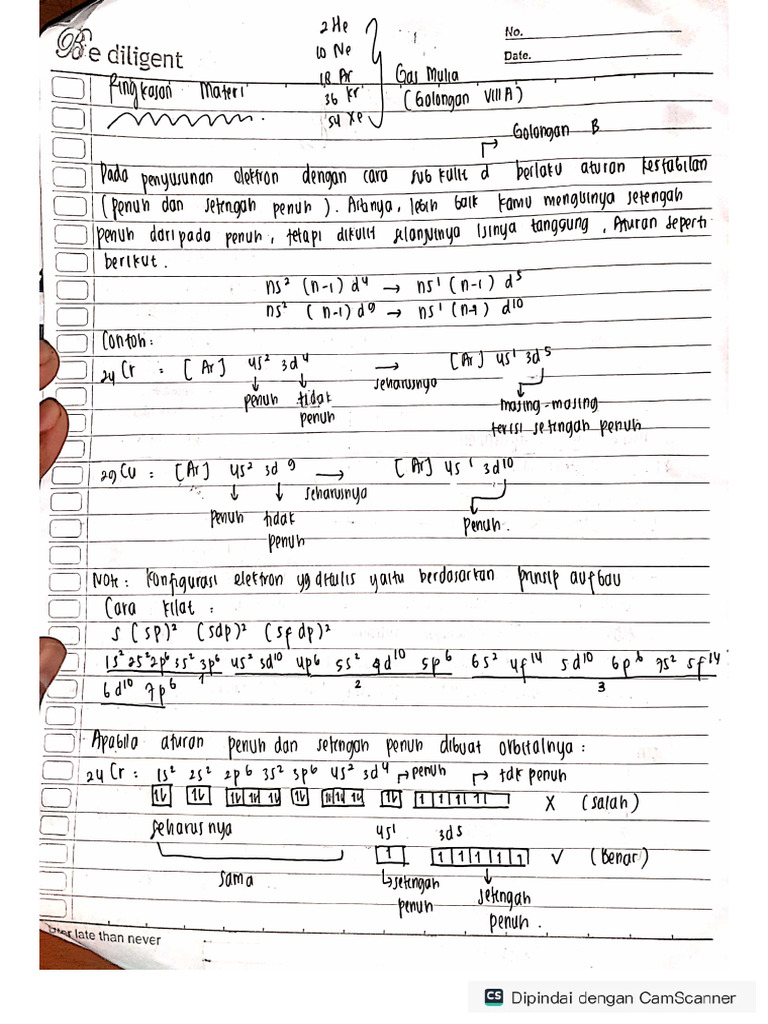 Be diligent
No.
Date.
2 He
10 Ne
18 Ar
36 Kr
54 Xe
Gas Mulia
(Golongan VIII A)
Ringkasan Materi
→ Golongan B
Pada penyusunan elektron dengan cara sub kulit d berlaku aturan kestabilan
(penuh dan setengah penuh). Artinya, lebih baik kamu mengisinya setengah
penuh daripada penuh, tetapi dikulit selanjutnya isinya tanggung, Aturan seperti
berikut.
ns² (n-1) d⁴ → ns¹ (n-1) d⁵
ns² (n-1) d⁹ → ns¹ (n-1) d¹⁰
Contoh:
24 Cr : [Ar] 4s² 3d⁴ → [Ar] 4s¹ 3d⁵
seharusnya
penuh tidak penuh
masing-masing
terisi setengah penuh
29 Cu : [Ar] 4s² 3d⁹ → [Ar] 4s¹ 3d¹⁰
seharusnya
penuh tidak penuh
penuh.
Note: Konfigurasi elektron yg ditulis yaitu berdasarkan prinsip aufbau
Cara kilat :
s (sp)² (sdp)² (sfdp)²
1s² 2s² 2p⁶ 3s² 3p⁶ 4s² 3d¹⁰ 4p⁶ 5s² 4d¹⁰ 5p⁶ 6s² 4f¹⁴ 5d¹⁰ 6p⁶ 7s² 5f¹⁴
1 2 3
6d¹⁰ 7p⁶
Apabila aturan penuh dan setengah penuh dibuat orbitalnya :
24 Cr : 1s² 2s² 2p⁶ 3s² 3p⁶ 4s² 3d⁴ → penuh → tdk penuh
1l 1l 1l 1l 1l 1l 1l 1l 1l 1l 1 1 1 1 X (salah)
seharusnya 4s¹ 3d⁵
1 1 1 1 1 1 √ (Benar)
sama
setengah penuh
setengah penuh.
late than never
CS Dipindai dengan CamScanner